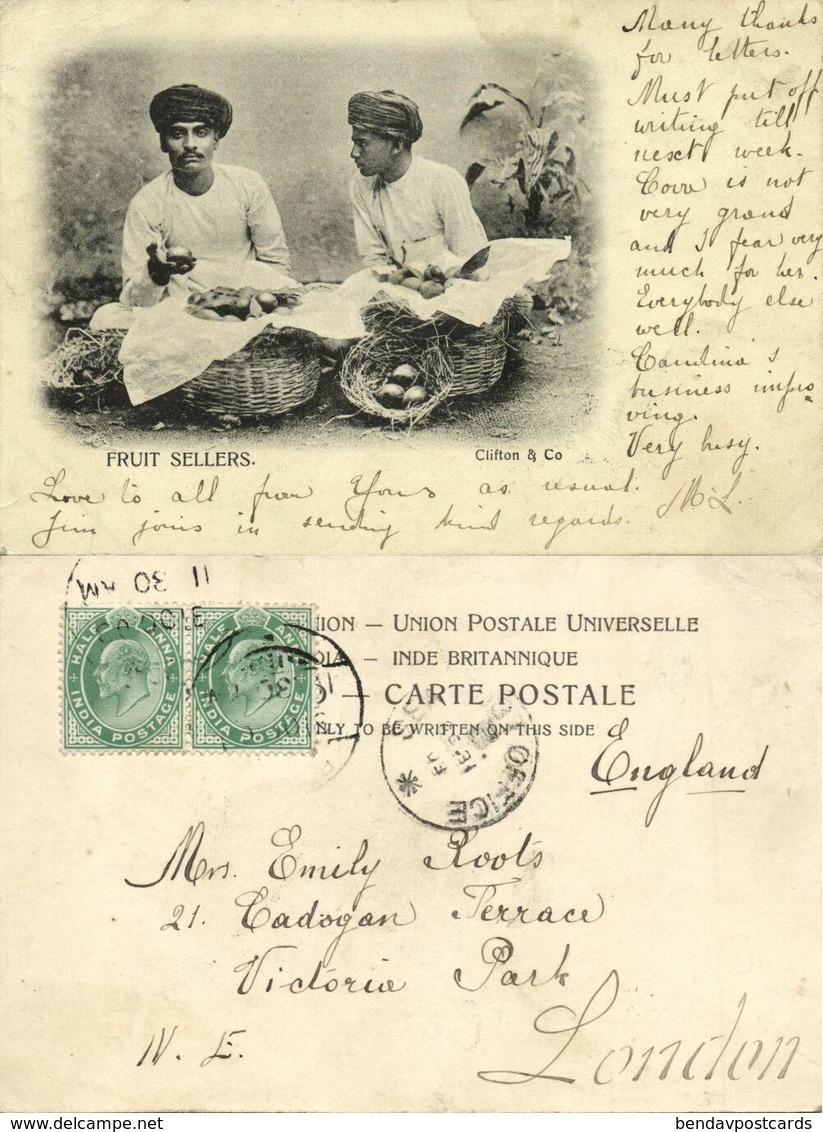 Many thanks
for letters.
Must put off
writing till
next week.
is not
very grand
and I fear very
much for her.
Everybody else
well.
business impro-
ving.
Very busy.
M.L.
FRUIT SELLERS.
Clifton & Co
Love to all from Yours as usual.
Jim joins in sending kind regards.
11 30 AM
HALF ANNA
INDIA POSTAGE
HALF ANNA
INDIA POSTAGE
ION — UNION POSTALE UNIVERSELLE
DIA — INDE BRITANNIQUE
D — CARTE POSTALE
NLY TO BE WRITTEN ON THIS SIDE
OFFICE
England
Mrs. Emily Roots
21. Cadogan Terrace
Victoria Park
N. E.
London
delcampe.net
bendavpostcards